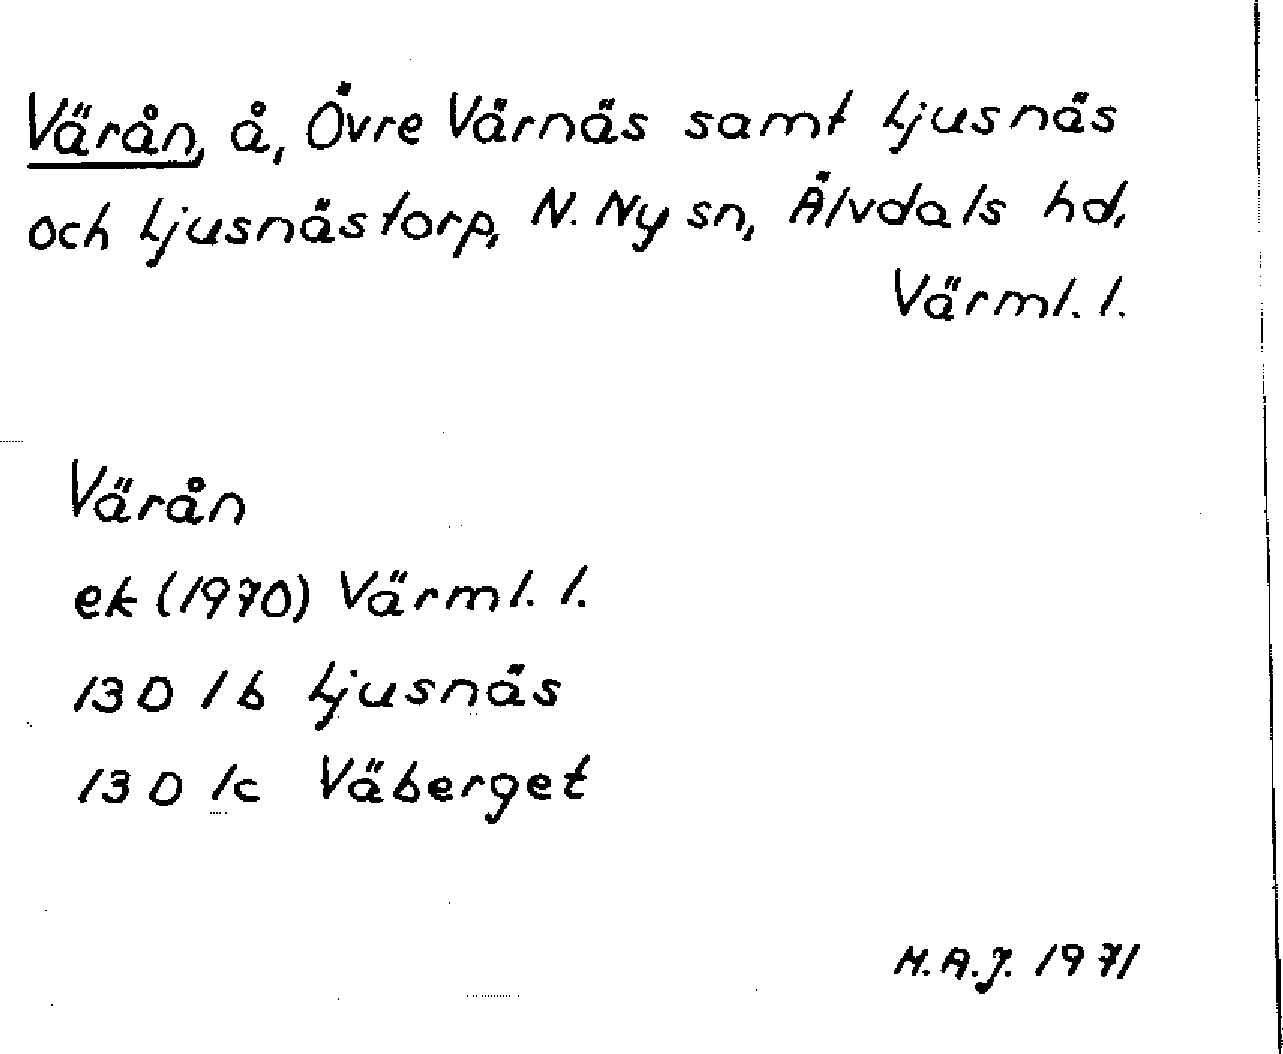 Värån, å, Övre Värnäs samt Ljusnäs
och Ljusnästorp, N. Ny sn, Älvdals hd,
Värml. l.
Värån
ek (1970) Värml. l.
13 D 1b Ljusnäs
13 D 1c Väberget
M.A.J. 1971